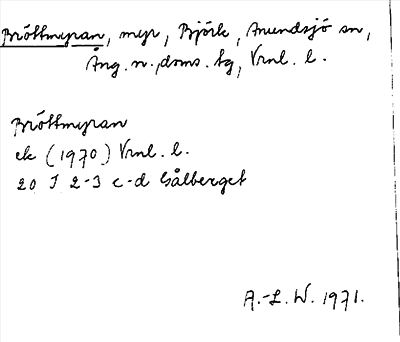 Bröttmyran, myr, Björk, Anundsjö sn,
Ång. n. doms. tg, Vrnl. l.
Bröttmyran
ek (1970) Vrnl. l.
20 I 2-3 c-d Gålberget
A.-L. W. 1971.